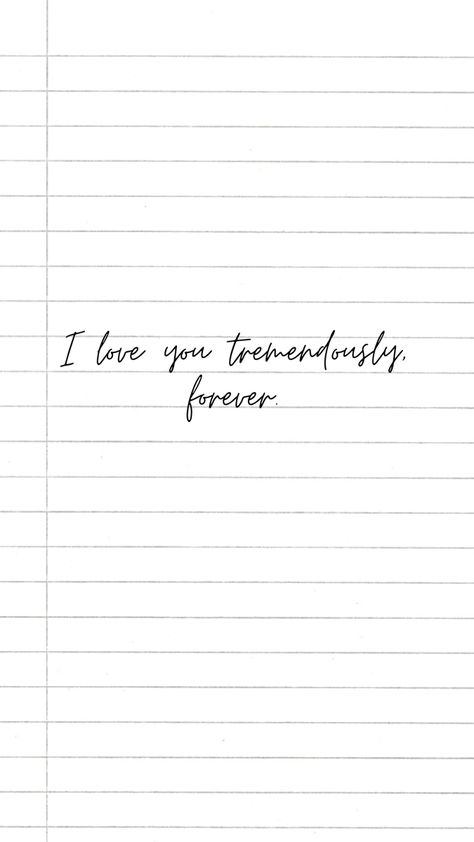 I love you tremendously,
forever.